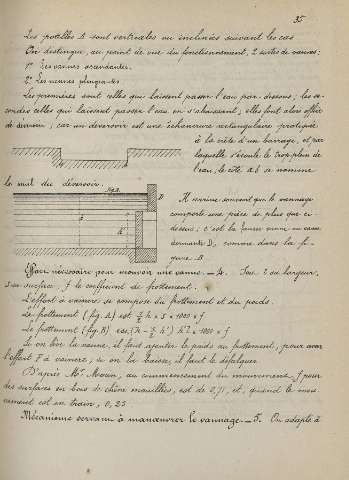 35
Les potelles b sont verticales ou inclinées suivant les cas
On distingue, au point de vue du fonctionnement, 2 sortes de vannes :
1° Les vannes ascendantes.
2° Les vannes plongeantes
Les premières sont celles qui laissent passer l'eau par-dessous ; les se-
condes celles qui laissent passer l'eau en s'abaissant, elles font alors office
de déversoir, car un déversoir est une échancrure rectangulaire pratiquée
à la crête d'un barrage, et par
laquelle s'écoule le trop-plein de
l'eau, le côté ab se nomme
le seuil du déversoir.
Fig. B
D
Il arrive souvent que le vannage
comporte une pièce de plus que ci-
dessus, c'est la fausse vanne
dormante D, comme dans la fi-
gure B
Force nécessaire pour mouvoir une vanne. — 4. Soit l sa largeur,
S sa surface, f le coefficient de frottement.
L'effort à vaincre se compose du frottement et du poids.
Le frottement (fig. A) est ½ h × S × 1000 × f
Le frottement (fig. B) est × 1000 × f
Si on lève la vanne, il faut ajouter le poids au frottement, pour avoir
l'effort F à vaincre, si on la baisse, il faut le défalquer.
D'après Mr Morin, au commencement du mouvement, f pour
des surfaces en bois de chêne mouillées, est de 0,71, et, quand le mou-
vement est en train, 0,25
Mécanisme servant à manœuvrer le vannage. — 5. On adapte à